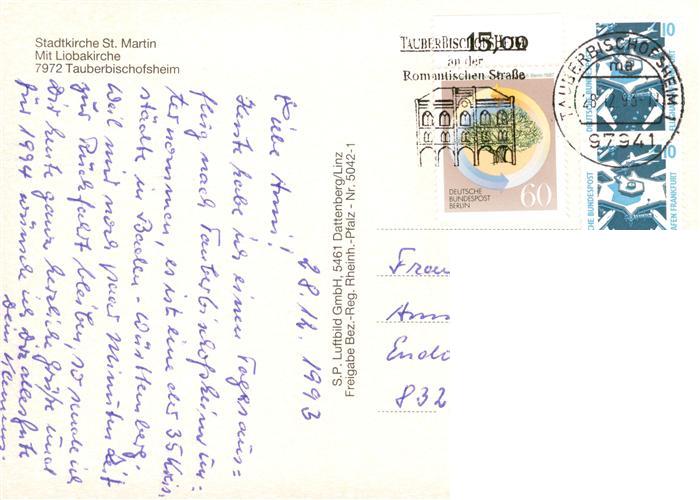 Stadtkirche St. Martin
Mit Liobakirche
7972 Tauberbischofsheim
15,00
TAUBERBISCHOFSHEIM
an der
Romantischen Straße
TAUBERBISCHOFSHEIM 1
ma
28.12.93-17
97941
DEUTSCHE
BUNDESPOST
BERLIN
60
10
10
HE BUNDESPOST
AFEN FRANKFURT
S.P. Luftbild GmbH, 5461 Dattenberg/Linz
Freigabe Bez.-Reg. Rheinh.-Pfalz - Nr. 5042-1
28.12.1993
Liebe Anni!
Heute habe ich einen Tagesaus=
flug nach Tauberbischofsheim un=
ternommen, es ist eine der 35 Kreis
städte in Baden-Württemberg.
Weil mir noch paar Minuten Zeit
zur Rückfahrt bleiben, so sende ich
Dir heute ganz herzliche Grüße und
für 1994 wünsche ich Dir alles Gute
Dein
Frau
Ann
Endo
832